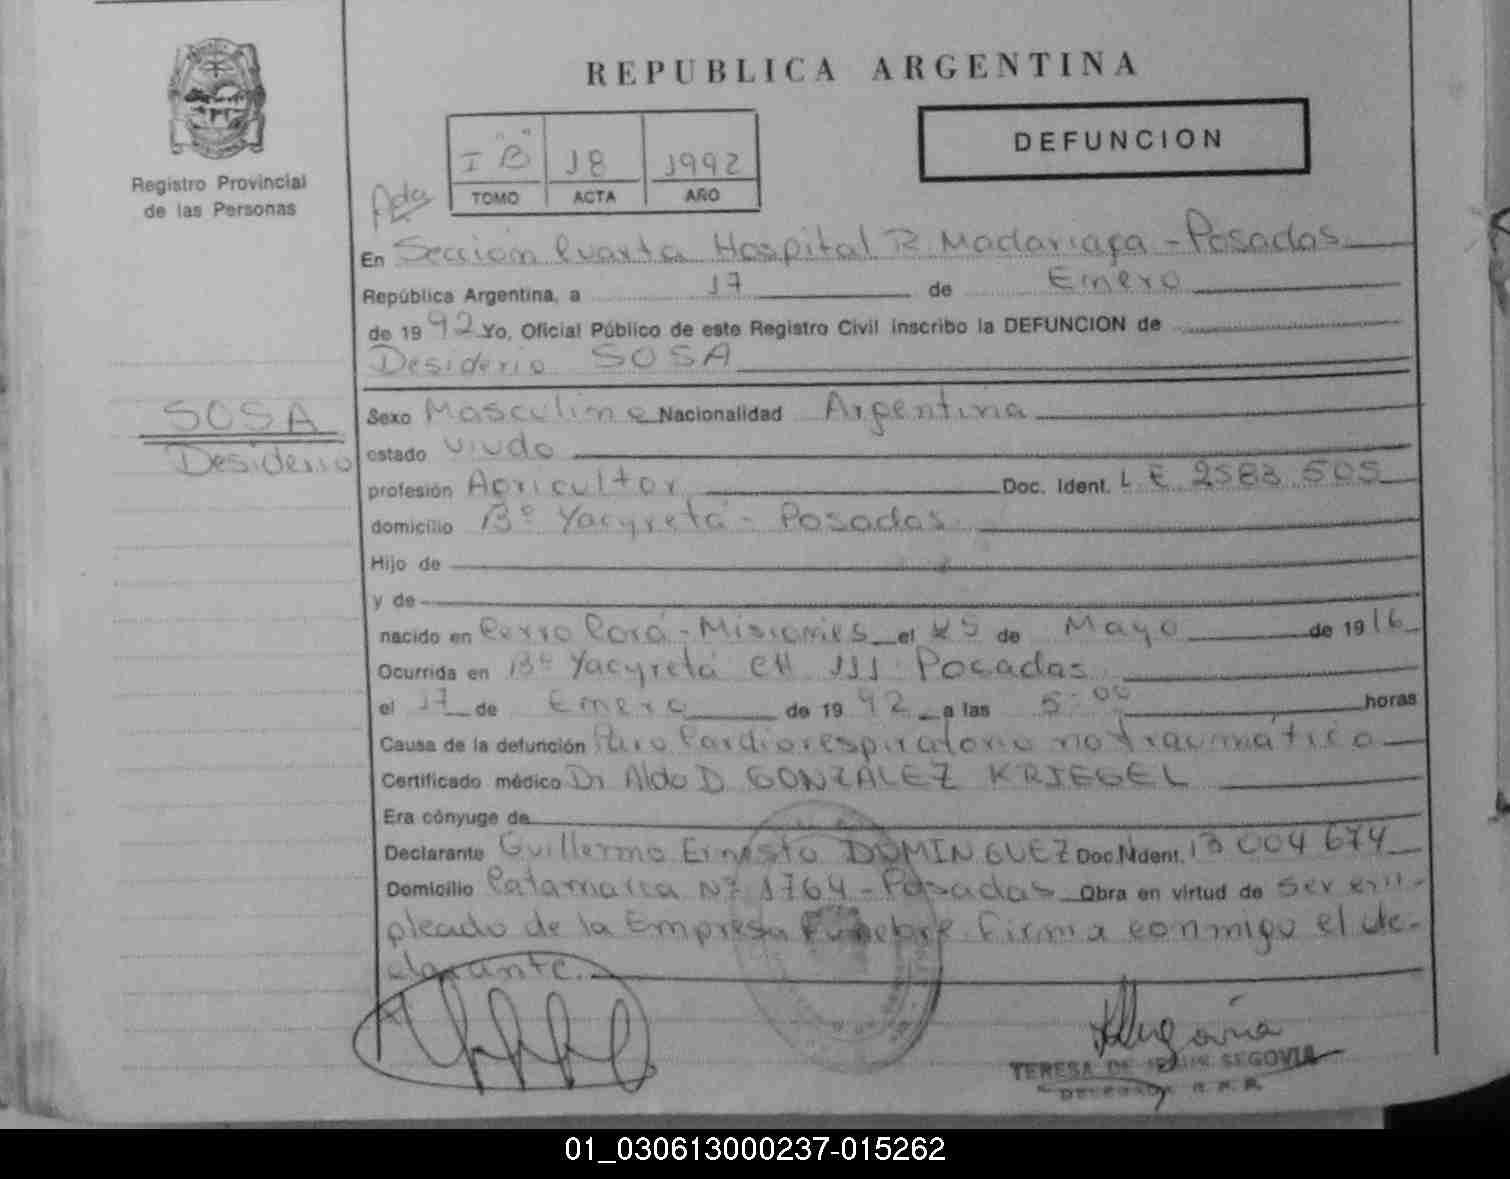 REPUBLICA ARGENTINA
DEFUNCION
Registro Provincial
de las Personas
I "B" 18 1992
TOMO ACTA AÑO
En Sección Cuarta Hospital R. Madariaga - Posadas
República Argentina, a 17 de Enero
de 1992 Yo, Oficial Público de este Registro Civil inscribo la DEFUNCION de
Desiderio SOSA
SOSA
Desiderio
Sexo Masculino Nacionalidad Argentina
estado Viudo
profesión Agricultor Doc. Ident. L E 2583 505
domicilio Bº Yacyretá - Posadas
Hijo de
y de
nacido en Cerro Corá - Misiones el 25 de Mayo de 1916
Ocurrida en Bº Yacyretá CH 111 Posadas
el 17 de Enero de 1992 a las 5:00 horas
Causa de la defunción Paro Cardiorespiratorio no traumático
Certificado médico Dr Aldo D. GONZALEZ KRIEGEL
Era cónyuge de
Declarante Guillermo Ernesto DOMINGUEZ Doc. Ident. 13 004 674
Domicilio Catamarca Nº 1764 - Posadas Obra en virtud de ser em-
pleado de la Empresa Fúnebre. Firma conmigo el de-
clarante.
TERESA DE JESUS SEGOVIA
DELEGADA R.P.P.
01_030613000237-015262